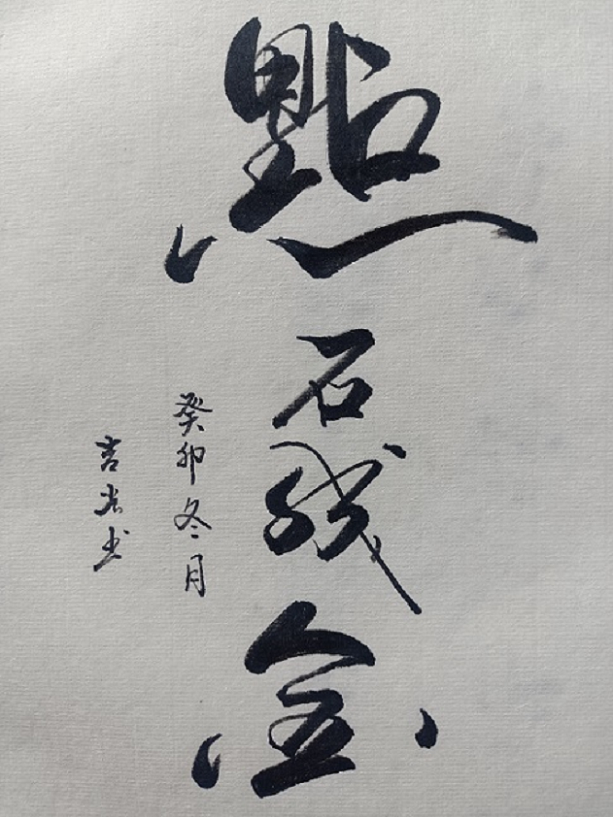 點石成金
癸卯冬月
吉宏书